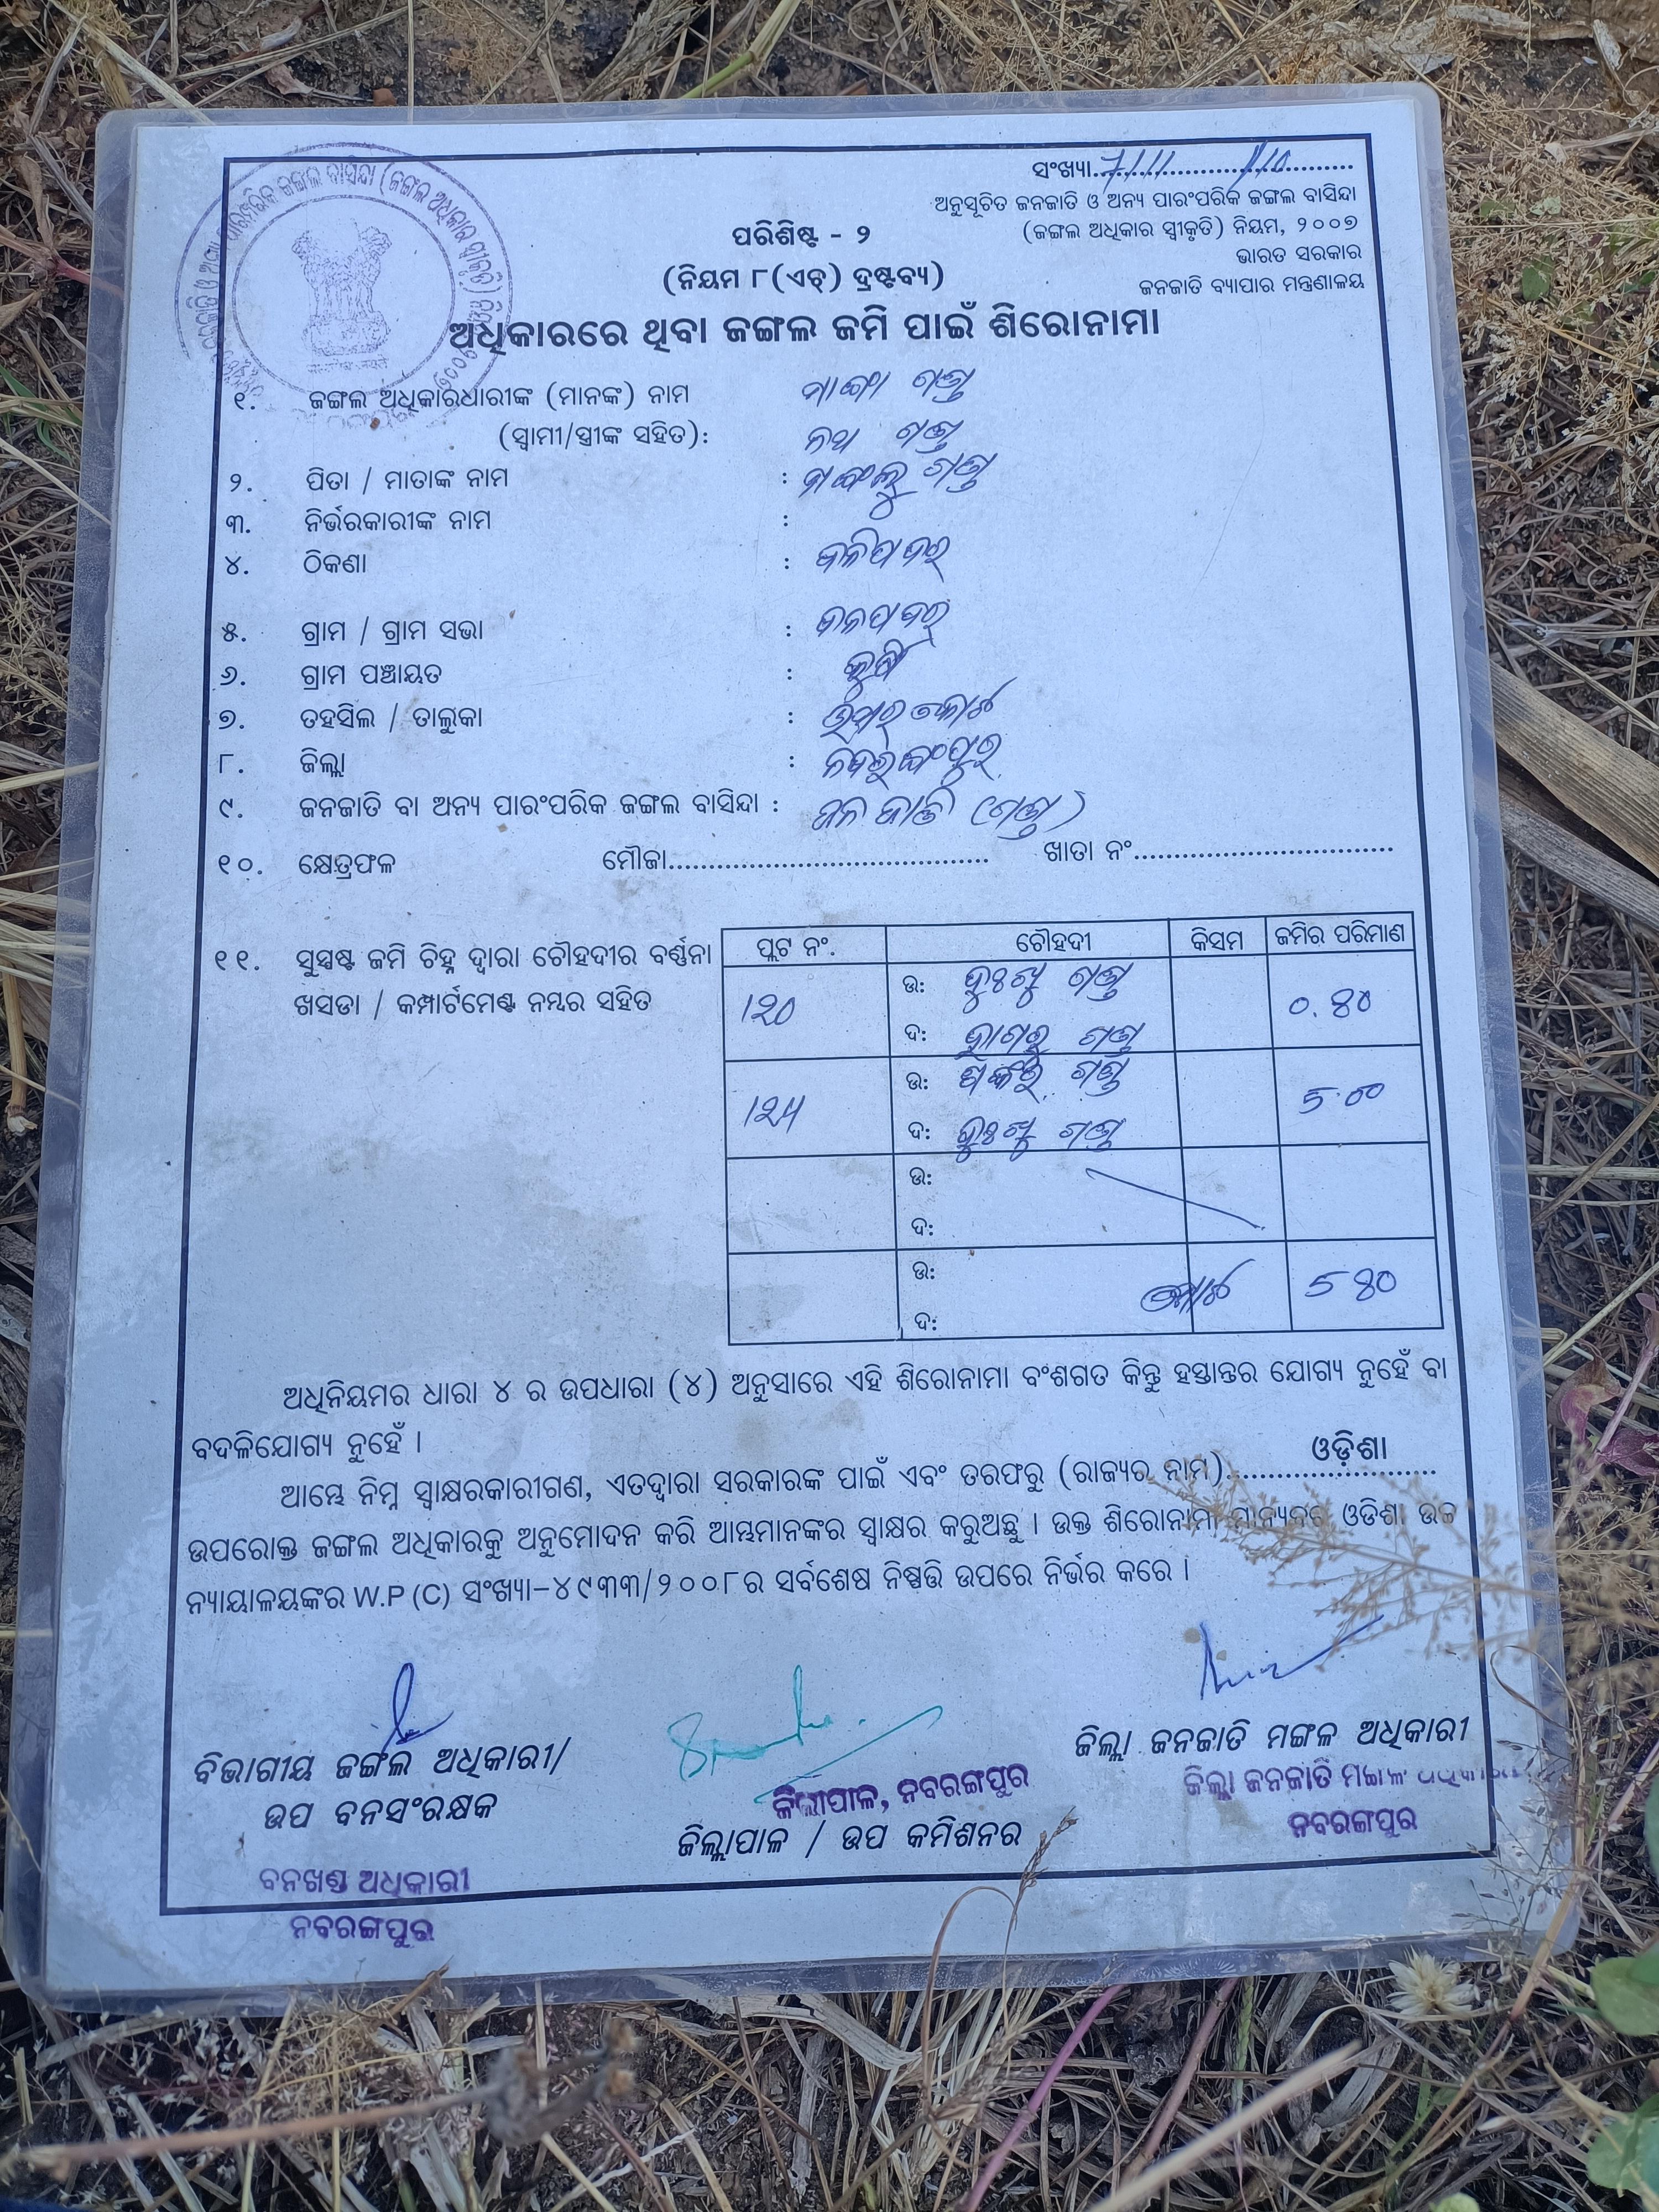 ସଂଖ୍ୟା
ଅନୁସୂଚିତ ଜନଜାତି ଓ ଅନ୍ୟ ପାରଂପରିକ ଜଙ୍ଗଲ ବାସିନ୍ଦା
(ଜଙ୍ଗଲ ଅଧିକାର ସ୍ୱୀକୃତି) ନିୟମ, ୨୦୦୭
ଭାରତ ସରକାର
ଜନଜାତି ବ୍ୟାପାର ମନ୍ତ୍ରଣାଳୟ
ପରିଶିଷ୍ଟ - ୨
(ନିୟମ ୮(ଏଚ୍) ଦ୍ରଷ୍ଟବ୍ୟ)
ଅଧିକାରରେ ଥିବା ଜଙ୍ଗଲ ଜମି ପାଇଁ ଶିରୋନାମା
୧. ଜଙ୍ଗଲ ଅଧିକାରଧାରୀଙ୍କ (ମାନଙ୍କ) ନାମ ଗଣ୍ଡ
(ସ୍ୱାମୀ/ସ୍ତ୍ରୀଙ୍କ ସହିତ): ଗଣ୍ଡ
୨. ପିତା / ମାତାଙ୍କ ନାମ : ମଙ୍ଗଲୁ ଗଣ୍ଡ
୩. ନିର୍ଭରକାରୀଙ୍କ ନାମ :
୪. ଠିକଣା :
୫. ଗ୍ରାମ / ଗ୍ରାମ ସଭା :
୬. ଗ୍ରାମ ପଞ୍ଚାୟତ :
୭. ତହସିଲ / ତାଲୁକା : ଉମରକୋଟ
୮. ଜିଲ୍ଲା : ନବରଙ୍ଗପୁର
୯. ଜନଜାତି ବା ଅନ୍ୟ ପାରଂପରିକ ଜଙ୍ଗଲ ବାସିନ୍ଦା : ଜନଜାତି (ଗଣ୍ଡ)
୧୦. କ୍ଷେତ୍ରଫଳ ମୌଜା ଖାତା ନଂ
୧୧. ସୁସ୍ପଷ୍ଟ ଜମି ଚିହ୍ନ ଦ୍ୱାରା ଚୌହଦୀର ବର୍ଣ୍ଣନା
ଖସଡା / କମ୍ପାର୍ଟମେଣ୍ଟ ନମ୍ବର ସହିତ
ପ୍ଲଟ ନଂ. ଚୌହଦୀ କିସମ ଜମିର ପରିମାଣ
120 ଉ: ଦୁଃଖୁ ଗଣ୍ଡ ୦.୪୦
ଦ: ଗଣ୍ଡ
ଉ: ଗଣ୍ଡ 5.00
ଦ: ଦୁଃଖୁ ଗଣ୍ଡ
ଉ:
ଦ:
ଉ: ମୋଟ 5 ୪୦
ଦ:
ଅଧିନିୟମର ଧାରା ୪ ର ଉପଧାରା (୪) ଅନୁସାରେ ଏହି ଶିରୋନାମା ବଂଶଗତ କିନ୍ତୁ ହସ୍ତାନ୍ତର ଯୋଗ୍ୟ ନୁହେଁ ବା
ବଦଳିଯୋଗ୍ୟ ନୁହେଁ ।
ଆମ୍ଭେ ନିମ୍ନ ସ୍ୱାକ୍ଷରକାରୀଗଣ, ଏତଦ୍ୱାରା ସରକାରଙ୍କ ପାଇଁ ଏବଂ ତରଫରୁ (ରାଜ୍ୟର ନାମ) ଓଡ଼ିଶା
ଉପରୋକ୍ତ ଜଙ୍ଗଲ ଅଧିକାରକୁ ଅନୁମୋଦନ କରି ଆମ୍ଭମାନଙ୍କର ସ୍ୱାକ୍ଷର କରୁଅଛୁ । ଉକ୍ତ ଶିରୋନାମା ମାନ୍ୟବର ଓଡିଶା ଉଚ୍ଚ
ନ୍ୟାୟାଳୟଙ୍କର W.P (C) ସଂଖ୍ୟା-୪୯୩୩/୨୦୦୮ର ସର୍ବଶେଷ ନିଷ୍ପତ୍ତି ଉପରେ ନିର୍ଭର କରେ ।
ବିଭାଗୀୟ ଜଙ୍ଗଲ ଅଧିକାରୀ/
ଉପ ବନସଂରକ୍ଷକ
ବନଖଣ୍ଡ ଅଧିକାରୀ
ନବରଙ୍ଗପୁର
ଜିଲ୍ଲାପାଳ, ନବରଙ୍ଗପୁର
ଜିଲ୍ଲାପାଳ / ଉପ କମିଶନର
ଜିଲ୍ଲା ଜନଜାତି ମଙ୍ଗଳ ଅଧିକାରୀ
ଜିଲ୍ଲା ଜନଜାତି ମଙ୍ଗଳ ଅଧିକାରୀ
ନବରଙ୍ଗପୁର